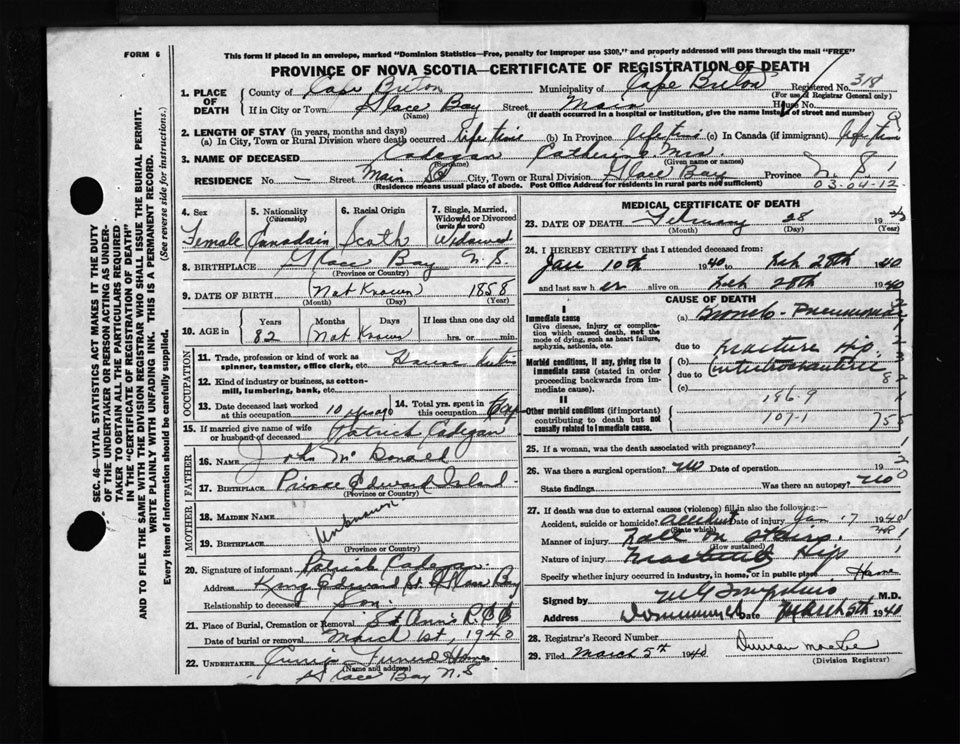 FORM 6
This form if placed in an envelope, marked "Dominion Statistics—Free, penalty for improper use $300," and properly addressed will pass through the mail "FREE"
PROVINCE OF NOVA SCOTIA—CERTIFICATE OF REGISTRATION OF DEATH
1. PLACE OF DEATH
County of Cape Breton Municipality of Cape Breton Registered No. 318
(For use of Registrar General only)
If in City or Town Glace Bay Street Main House No.
(Name) (If death occurred in a hospital or institution, give the name instead of street and number)
2. LENGTH OF STAY (in years, months and days)
(a) In City, Town or Rural Division where death occurred Life time (b) In Province Life time (c) In Canada (if immigrant) Life time
3. NAME OF DECEASED Cadegan Catherine Mrs.
(Surname) (Given name or names)
RESIDENCE No. — Street Main St City, Town or Rural Division Glace Bay Province N. S
(Residence means usual place of abode. Post Office Address for residents in rural parts not sufficient)
03-04-12
4. Sex Female
5. Nationality (Citizenship) Canadain
6. Racial Origin Scoth
7. Single, Married, Widowed or Divorced (write the word) Widowed
8. BIRTHPLACE Glace Bay N. S.
(Province or Country)
9. DATE OF BIRTH (Not Known) 1858
(Month) (Day) (Year)
10. AGE in Years 82 Months Not Days Known If less than one day old hrs. or min.
OCCUPATION
11. Trade, profession or kind of work as spinner, teamster, office clerk, etc.
12. Kind of industry or business, as cotton-mill, lumbering, bank, etc.
13. Date deceased last worked at this occupation 10 yrs ago
14. Total yrs. spent in this occupation
15. If married give name of wife or husband of deceased Patrick Cadegan
FATHER
16. NAME John McDonald
17. BIRTHPLACE Prince Edward Island
(Province or Country)
MOTHER
18. MAIDEN NAME Unknown
19. BIRTHPLACE
(Province or Country)
20. Signature of informant Patrick Cadegan
Address King Edward St. Glace Bay
Relationship to deceased Son
21. Place of Burial, Cremation or Removal St Ann's
Date of burial or removal March 1st, 1940
22. UNDERTAKER Funeral Home
(Name and address)
Glace Bay N. S
MEDICAL CERTIFICATE OF DEATH
23. DATE OF DEATH February 28 19
(Month) (Day) (Year)
24. I HEREBY CERTIFY that I attended deceased from:
Jan 10th 1940 to Feb 28th 1940
and last saw her alive on Feb 28th 1940
CAUSE OF DEATH
I
Immediate cause
Give disease, injury or complication which caused death, not the mode of dying, such as heart failure, asphyxia, asthenia, etc.
(a) Broncho-Pneumonia
due to
Morbid conditions, if any, giving rise to immediate cause (stated in order proceeding backwards from immediate cause).
(b) Fracture Hip
due to
(c)
II
Other morbid conditions (if important) contributing to death but not causally related to immediate cause.
186-9
107-1
25. If a woman, was the death associated with pregnancy?
26. Was there a surgical operation? No Date of operation 19
State findings Was there an autopsy? No
27. If death was due to external causes (violence) fill in also the following:—
Accident, suicide or homicide? Accident Date of injury Jan 7 1940
(State which)
Manner of injury Fall on stairs
(How sustained)
Nature of injury Fractured Hip
Specify whether injury occurred in industry, in home, or in public place Home
Signed by M.D.
Address Date March 5th 1940
28. Registrar's Record Number
29. Filed March 5th 1940
(Division Registrar)
SEC. 46—VITAL STATISTICS ACT MAKES IT THE DUTY OF THE UNDERTAKER OR PERSON ACTING AS UNDERTAKER TO OBTAIN ALL THE PARTICULARS REQUIRED IN THE "CERTIFICATE OF REGISTRATION OF DEATH" AND TO FILE THE SAME WITH THE DIVISION REGISTRAR WHO SHALL ISSUE THE BURIAL PERMIT.
WRITE PLAINLY WITH UNFADING INK. THIS IS A PERMANENT RECORD.
Every item of information should be carefully supplied. (See reverse side for instructions.)